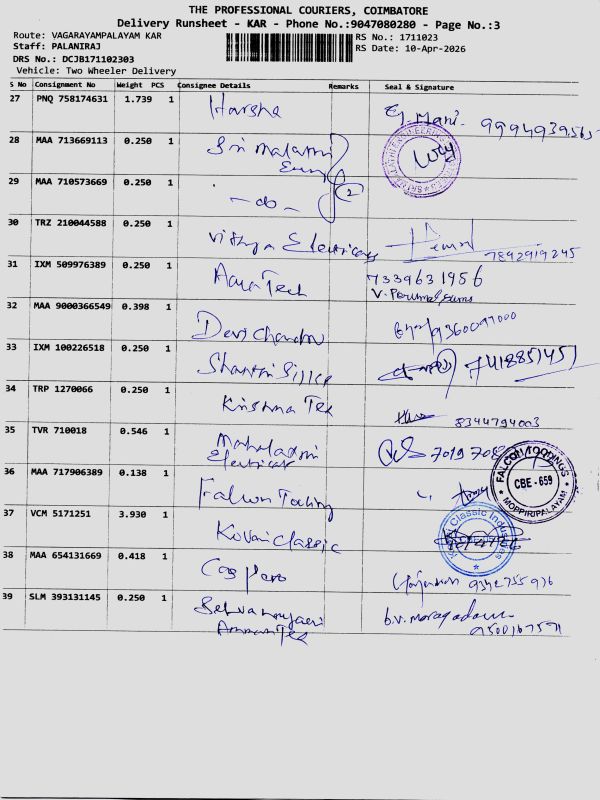 THE PROFESSIONAL COURIERS, COIMBATORE
Delivery Runsheet - KAR - Phone No.:9047080280 - Page No.:3
Route: VAGARAYAMPALAYAM KAR
RS No.: 1711023
Staff: PALANIRAJ
RS Date: 10-Apr-2026
DRS No.: DCJB171102303
Vehicle: Two Wheeler Delivery
S No Consignment No Weight PCS Consignee Details Remarks Seal & Signature
27 PNQ 758174631 1.739 1 Harsha
28 MAA 713669113 0.250 1 Sri Malathi
29 MAA 710573669 0.250 1 -do- 2
30 TRZ 210044588 0.250 1 Vithya Electricals 7892919245
31 IXM 509976389 0.250 1 Aara Tech 7339631956
V. Perumal
32 MAA 9000366549 0.398 1 Devi Chandra
33 IXM 100226518 0.250 1 Shanthi
34 TRP 1270066 0.250 1 Krishna Tex 8344794003
35 TVR 710018 0.546 1 Mahalaxmi
Electricals
36 MAA 717906389 0.138 1 Falcon Tooling
FALCON TOOLINGS
CBE - 659
MOPPIRIPALAYAM
37 VCM 5171251 3.930 1 Kovai Classic
Classic Industries
38 MAA 654131669 0.418 1
39 SLM 393131145 0.250 1 Selvanayaki
Amman Tex